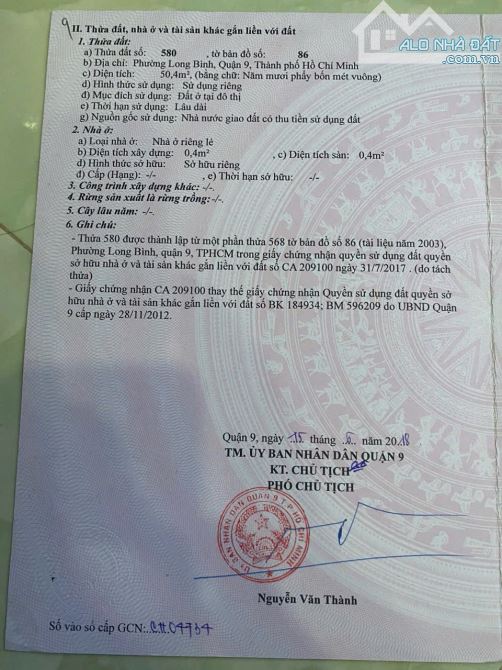 ALO NHÀ ĐẤT
.com.vn
9
II. Thửa đất, nhà ở và tài sản khác gắn liền với đất
1. Thửa đất:
a) Thửa đất số: 580 tờ bản đồ số: 86
b) Địa chỉ: Phường Long Bình, Quận 9, Thành phố Hồ Chí Minh
c) Diện tích: 50,4m², (bằng chữ: Năm mươi phẩy bốn mét vuông)
d) Hình thức sử dụng: Sử dụng riêng
đ) Mục đích sử dụng: Đất ở tại đô thị
e) Thời hạn sử dụng: Lâu dài
g) Nguồn gốc sử dụng: Nhà nước giao đất có thu tiền sử dụng đất
2. Nhà ở:
a) Loại nhà ở: Nhà ở riêng lẻ
b) Diện tích xây dựng: 0,4m² , c) Diện tích sàn: 0,4m²
d) Hình thức sở hữu: Sở hữu riêng
đ) Cấp (Hạng): -/- , e) Thời hạn sở hữu: -/-
3. Công trình xây dựng khác: -/-.
4. Rừng sản xuất là rừng trồng: -/-.
5. Cây lâu năm: -/-.
6. Ghi chú:
- Thửa 580 được thành lập từ một phần thửa 568 tờ bản đồ số 86 (tài liệu năm 2003),
Phường Long Bình, quận 9, TPHCM trong giấy chứng nhận quyền sử dụng đất quyền
sở hữu nhà ở và tài sản khác gắn liền với đất số CA 209100 ngày 31/7/2017 . (do tách
thửa)
- Giấy chứng nhận CA 209100 thay thế giấy chứng nhận Quyền sử dụng đất quyền sở
hữu nhà ở và tài sản khác gắn liền với đất số BK 184934; BM 596209 do UBND Quận
9 cấp ngày 28/11/2012.
Quận 9, ngày 15 tháng 6 năm 2018
TM. ỦY BAN NHÂN DÂN QUẬN 9
KT. CHỦ TỊCH
PHÓ CHỦ TỊCH
ỦY BAN NHÂN DÂN QUẬN 9 T.P HỒ CHÍ MINH
Nguyễn Văn Thành
Số vào sổ cấp GCN: CH04734